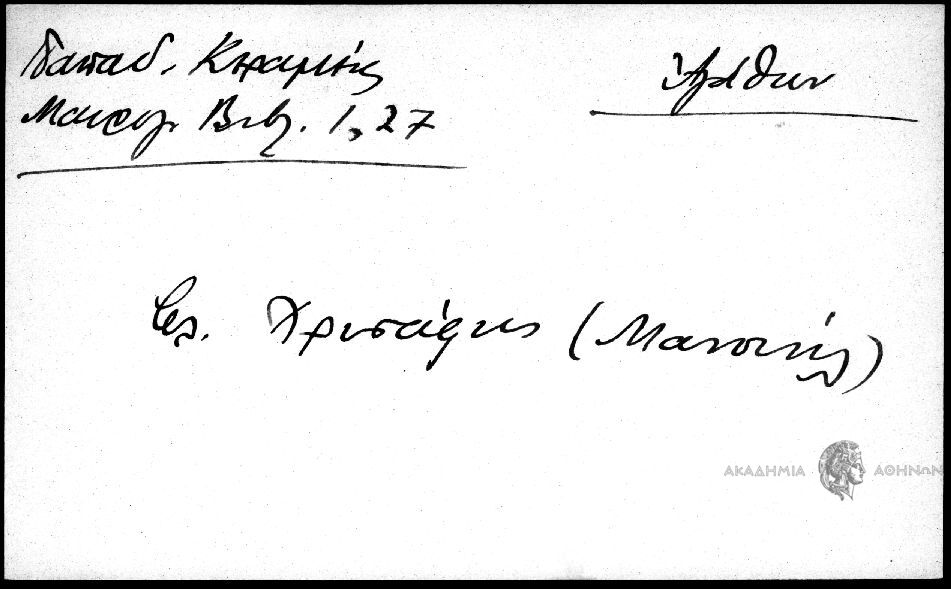 Παπαδ. Κεραμεύς
Μαυρογ. Βιβ. 1, 27
Ἀγάθων
βλ. Χρυσάφης (Μανουήλ)
ΑΚΑΔΗΜΙΑ ΑΘΗΝΩΝ